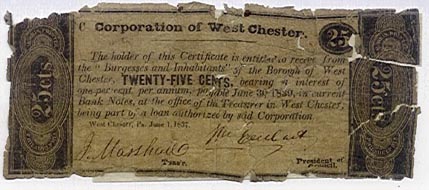 C Corporation of West Chester. 25
The holder of this Certificate is entitled to receive from
the "Burgesses and Inhabitants" of the Borough of West
Chester, TWENTY-FIVE CENTS, bearing an interest of
one per cent. per annum, payable June 30, 1839, in current
Bank Notes, at the office of the Treasurer in West Chester,
being part of a loan authorized by said Corporation
West Chester, Pa. June 1, 1837.
J. Marshall
Treas'r.
President of
Council.
25cts
25cts